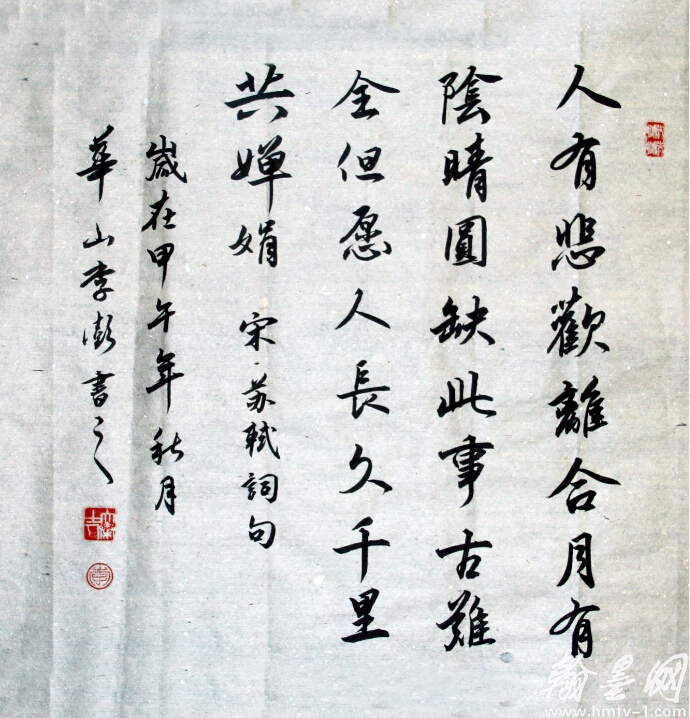 人有悲歡離合月有
陰晴圓缺此事古難
全但愿人長久千里
共嬋娟 宋·蘇軾詞句
嵗在甲午年秋月
華山李澎書之
翰墨网
www.hmtv-1.com